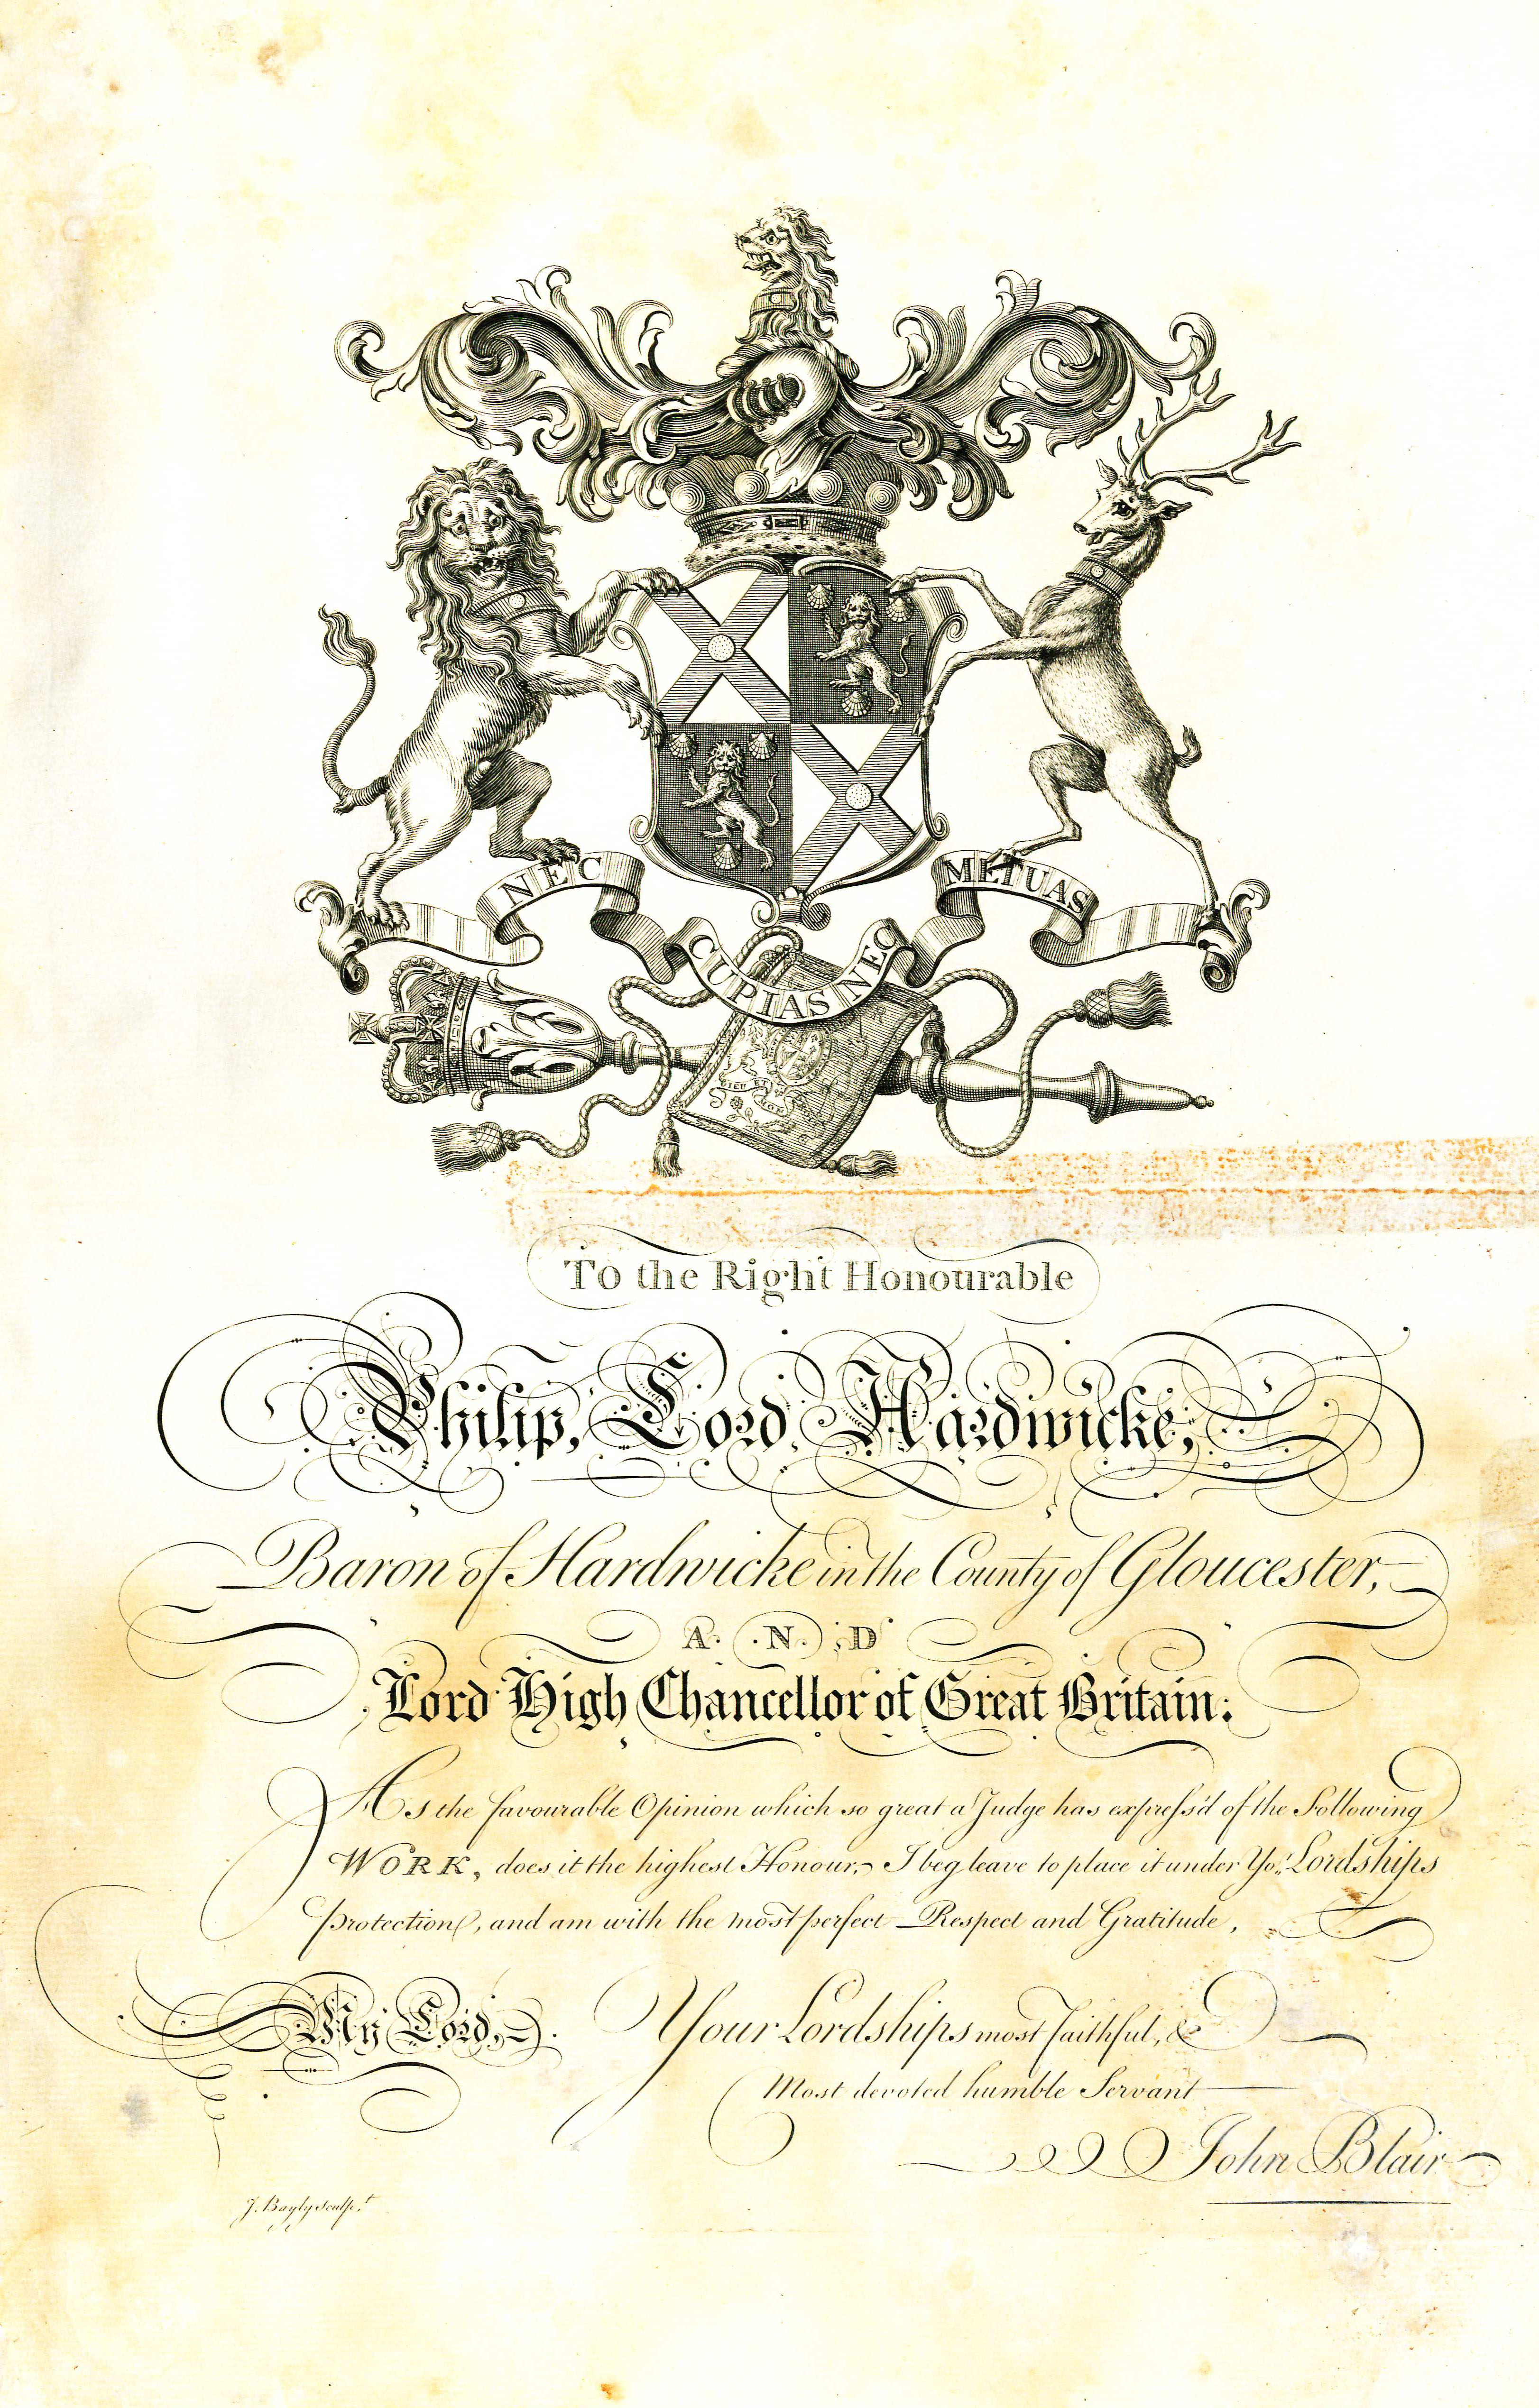 NEC
CUPIAS NEC
METUAS
DIEU ET
MON
To the Right Honourable
Philip, Lord Hardwicke,
Baron of Hardwicke in the County of Gloucester,
A. N. D
Lord High Chancellor of Great Britain:
As the favourable Opinion which so great a Judge has expreſs'd of the Following
WORK, does it the highest Honour, I beg leave to place it under Yo.r Lordships
Protection, and am with the most perfect Respect and Gratitude,
My Lord,
Your Lordships most Faithful, &
Most devoted humble Servant
John Blair
J. Bayly sculp.t